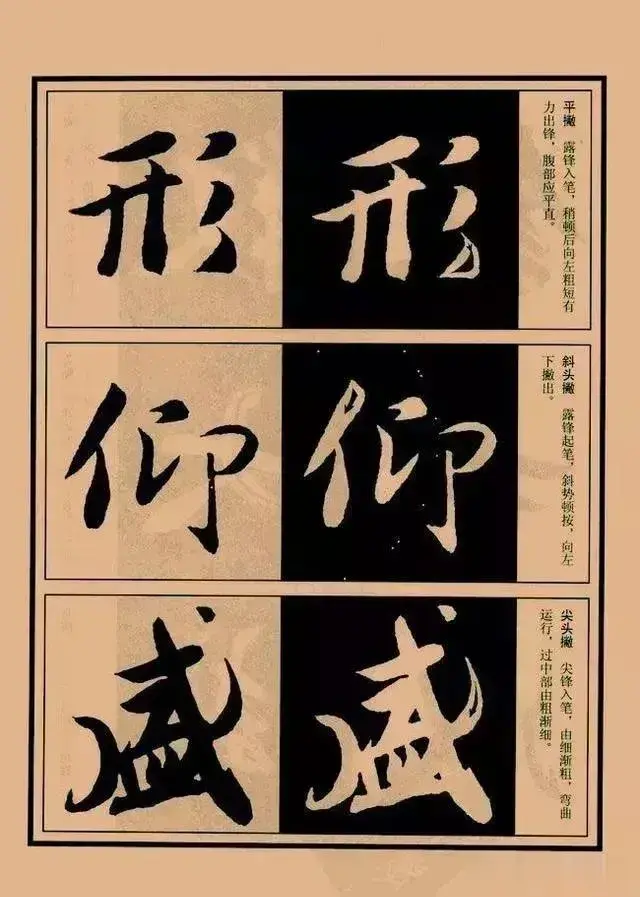 形 形
平撇 露锋入笔，稍顿后向左粗短有
力出锋，腹部应平直。
仰 仰
斜头撇 露锋起笔，斜势顿按，向左
下撇出。
盛 盛
尖头撇 尖锋入笔，由细渐粗，弯曲
运行，过中部由粗渐细。